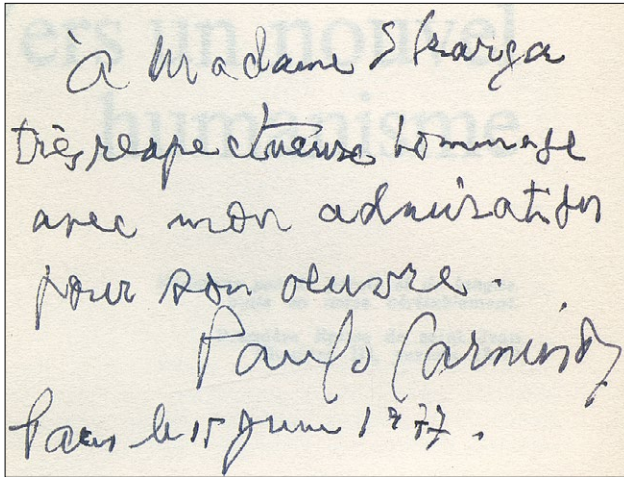 ers un nouvel
humanisme
à Madame Skarga
très respectueuse hommage
avec mon admiration
pour son oeuvre.
Paulo Carneiro
Paris le 15 Juin 1977.